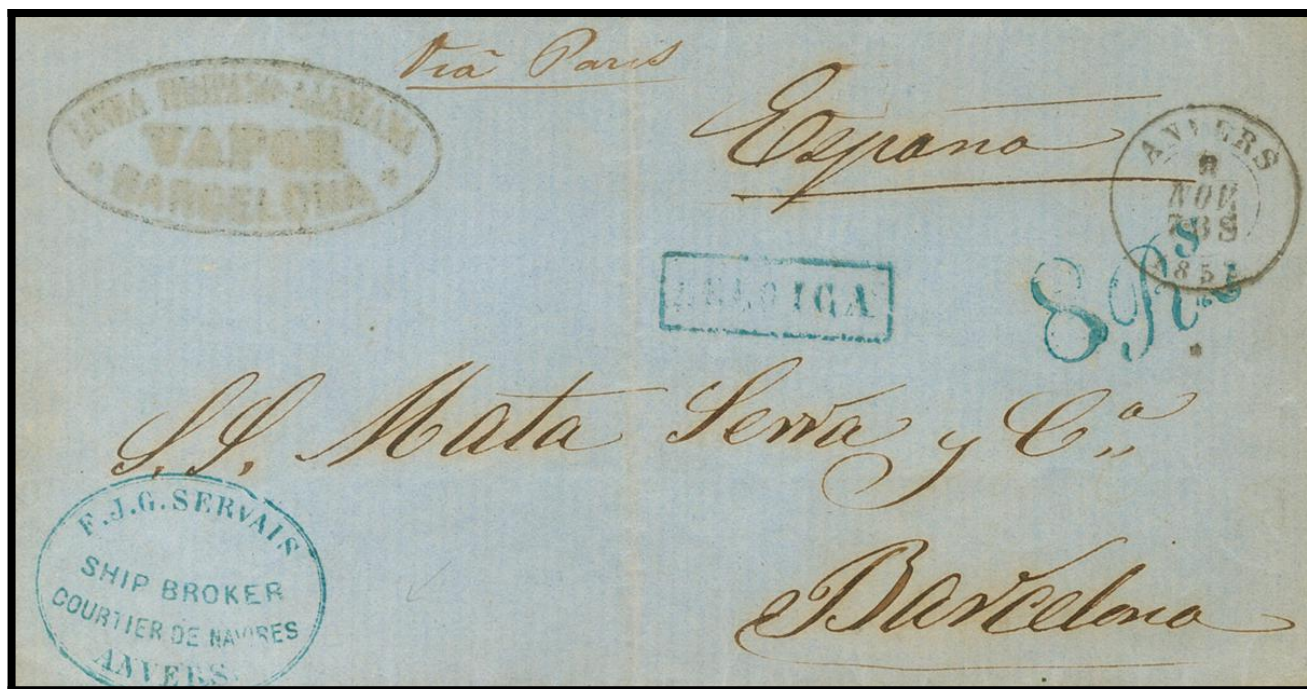 Via Paris
VAPOR
BARCELONA
España
ANVERS
NOV
185
BELGICA
8 Rs
S.S. Mata Serra y Cª
Barcelona
F.J.G. SERVAIS
SHIP BROKER
COURTIER DE NAVIRES
ANVERS